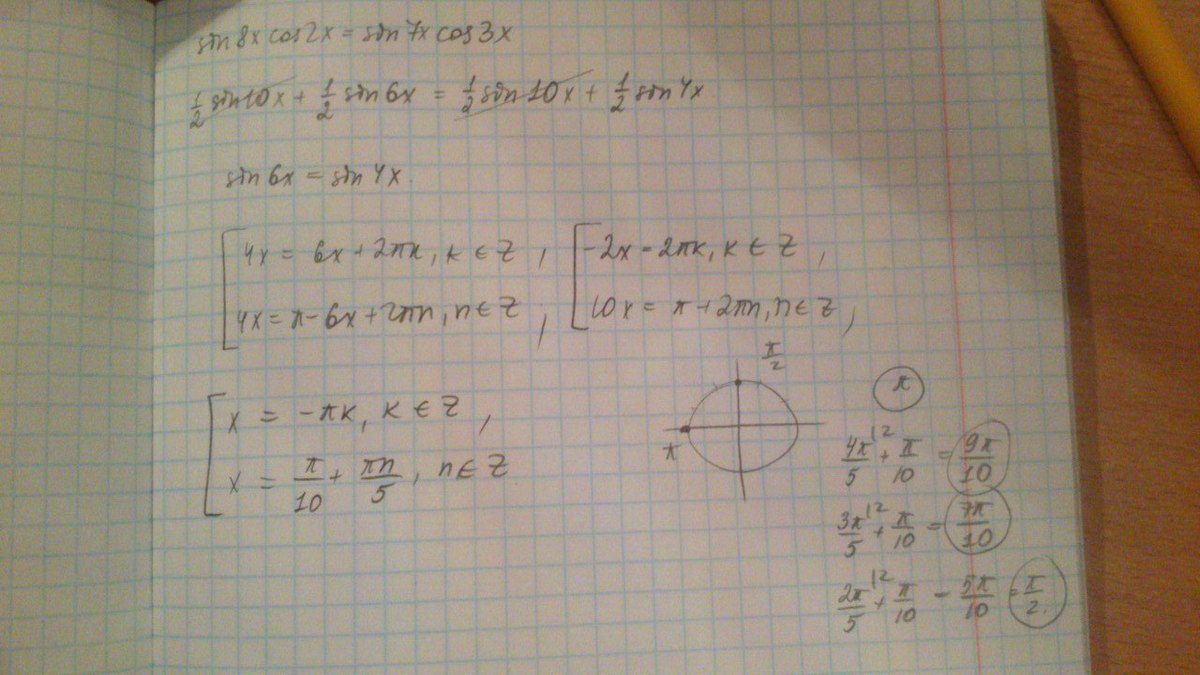 sin 8x cos 2x = sin 7x cos 3x
1/2 sin 10x + 1/2 sin 6x = 1/2 sin 10x + 1/2 sin 4x
sin 6x = sin 4x.
[ 4x = 6x + 2πk, k ∈ Z, [ -2x = 2πk, k ∈ Z,
4x = π - 6x + 2πn, n ∈ Z, 10x = π + 2πn, n ∈ Z,
[ x = -πk, k ∈ Z,
x = π/10 + πn/5, n ∈ Z
π/2
π
π
4π/5 |2 + π/10 = 9π/10
3π/5 |2 + π/10 = 7π/10
2π/5 |2 + π/10 = 5π/10 = π/2.